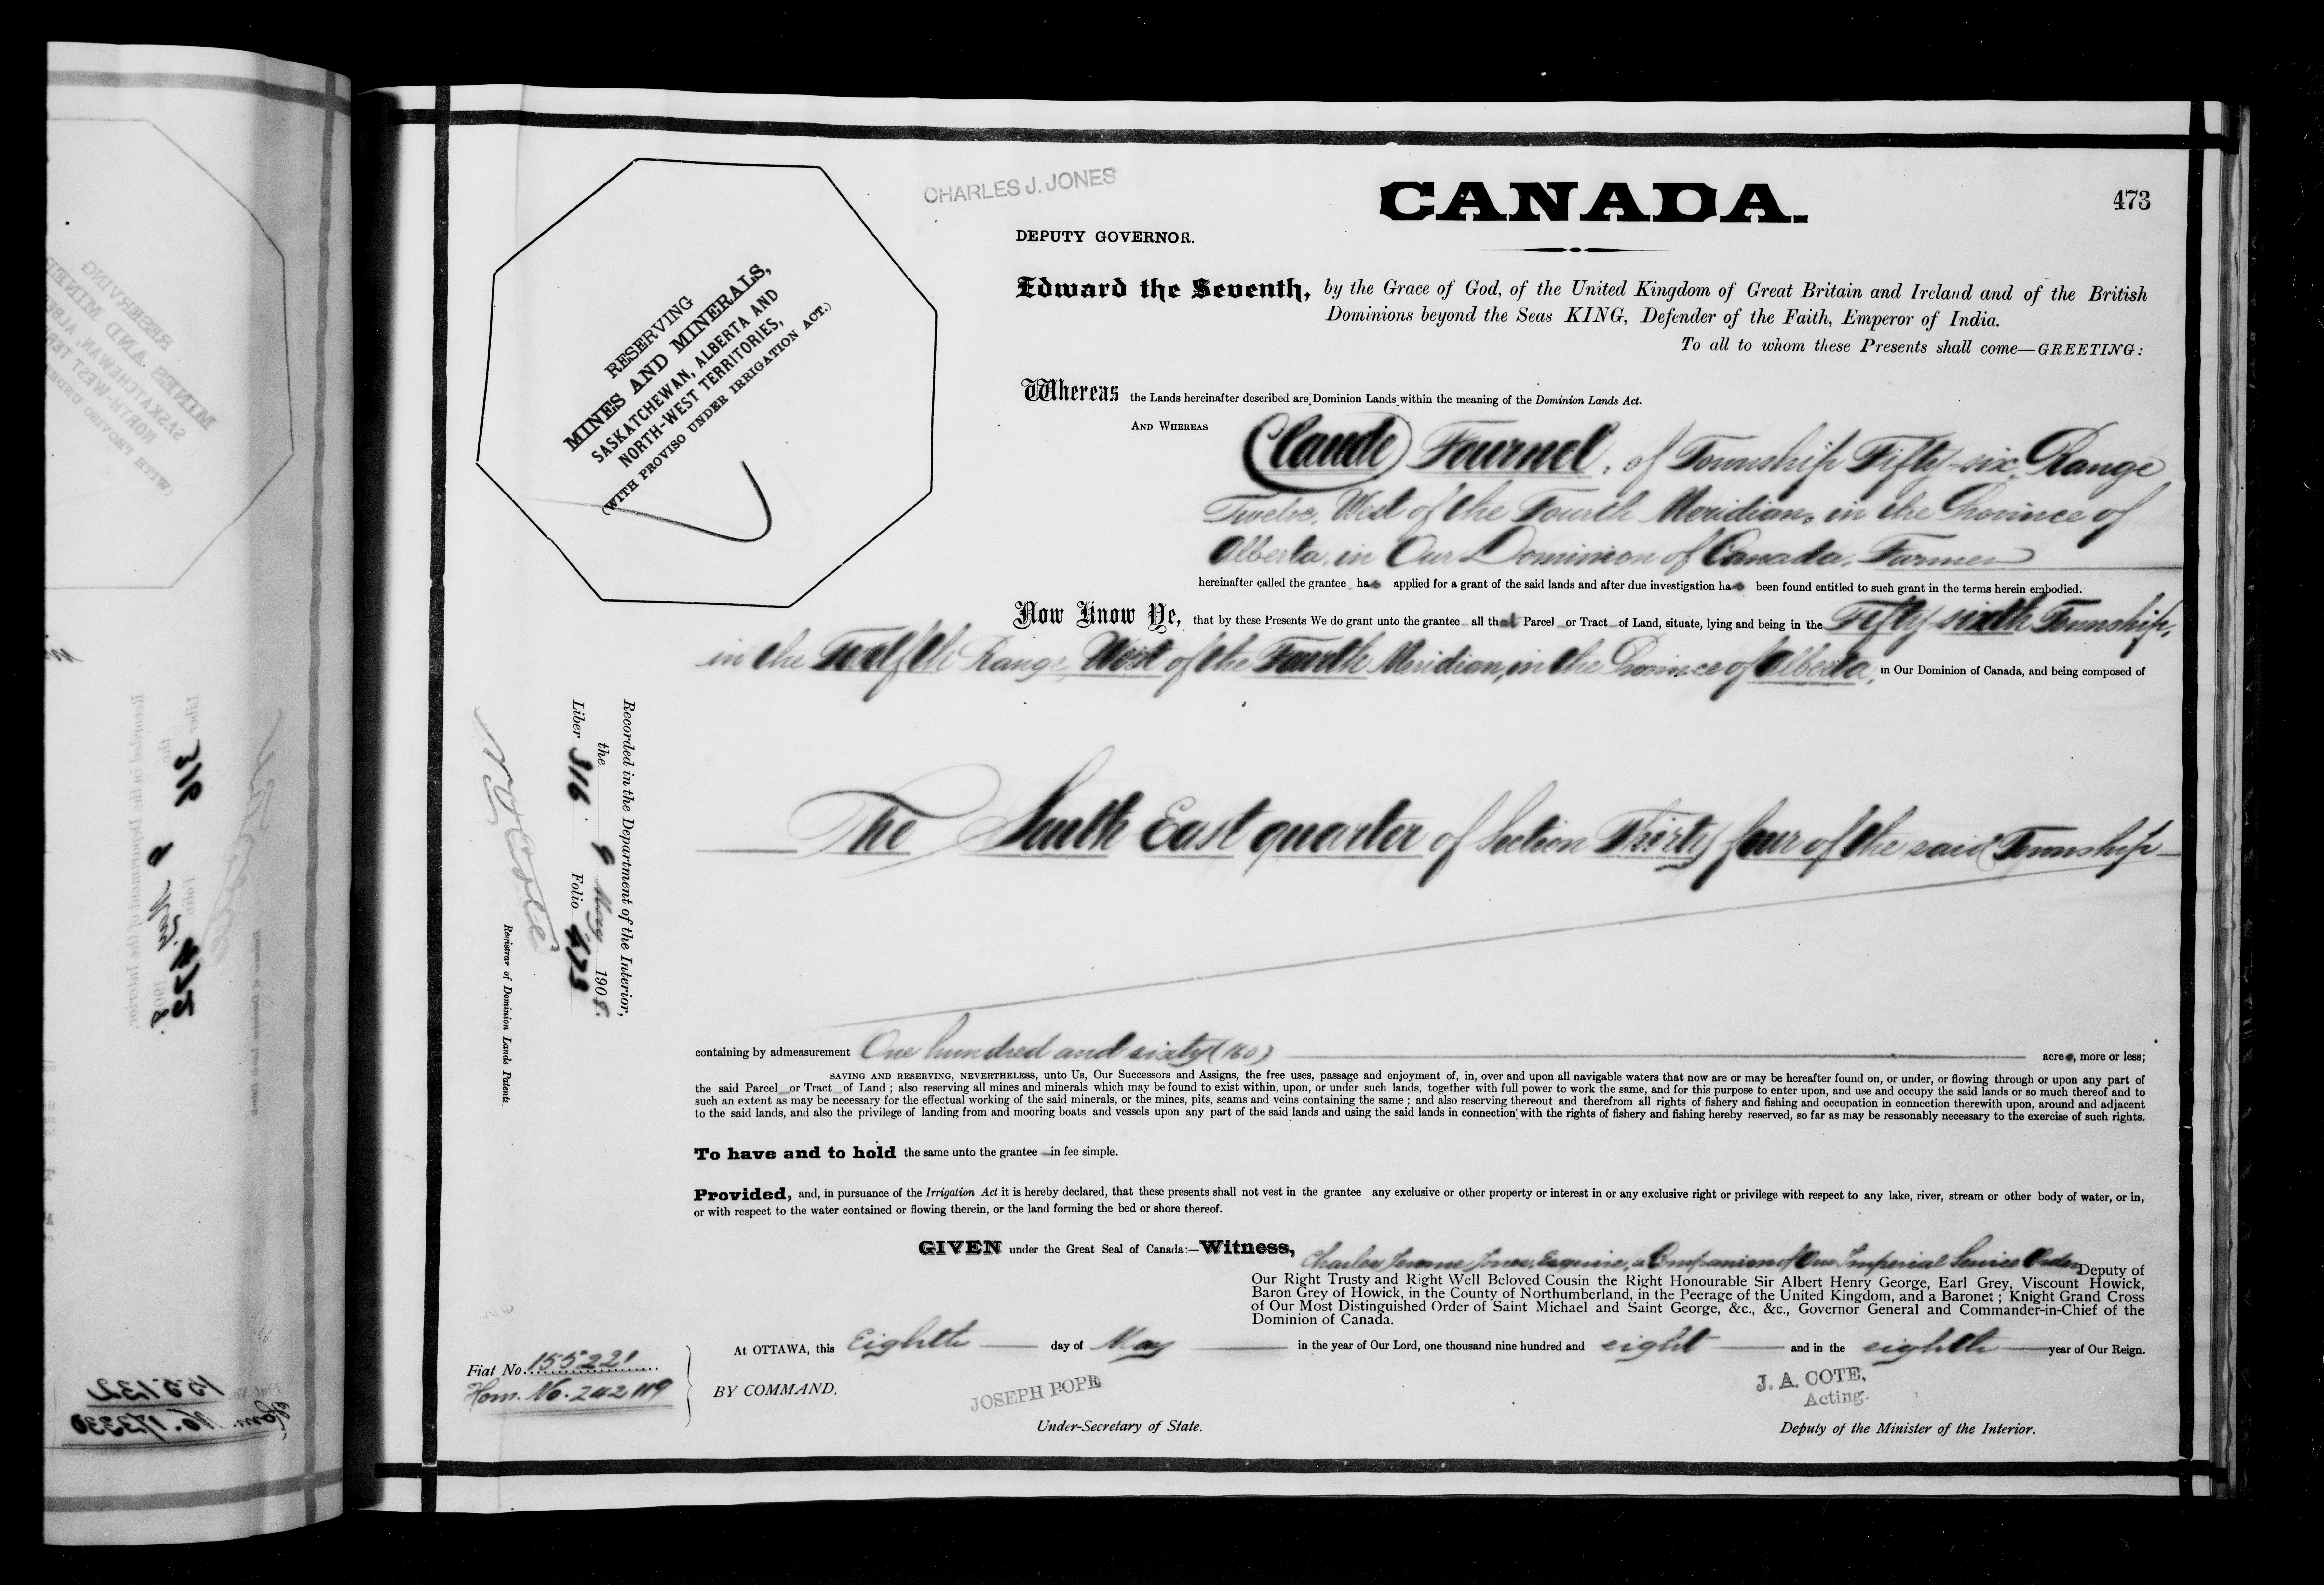 CHARLES J. JONES
CANADA.
473
DEPUTY GOVERNOR.
RESERVING
MINES AND MINERALS,
SASKATCHEWAN, ALBERTA AND
NORTH-WEST TERRITORIES,
(WITH PROVISO UNDER IRRIGATION ACT.)
Edward the Seventh, by the Grace of God, of the United Kingdom of Great Britain and Ireland and of the British
Dominions beyond the Seas KING, Defender of the Faith, Emperor of India.
To all to whom these Presents shall come—GREETING:
Whereas the Lands hereinafter described are Dominion Lands within the meaning of the Dominion Lands Act.
AND WHEREAS Claude Fournel, of Township Fifty-six, Range
Twelve, West of the Fourth Meridian, in the Province of
Alberta, in Our Dominion of Canada, Farmer
hereinafter called the grantee has applied for a grant of the said lands and after due investigation has been found entitled to such grant in the terms herein embodied.
Now Know Ye, that by these Presents We do grant unto the grantee all that Parcel or Tract of Land, situate, lying and being in the Fifty-sixth Township,
in the Twelfth Range, West of the Fourth Meridian, in the Province of Alberta, in Our Dominion of Canada, and being composed of
The South East quarter of Section Thirty four of the said Township
Recorded in the Department of the Interior,
the 9 May 1908.
Liber 316. Folio 473
Registrar of Dominion Lands Patents.
containing by admeasurement One hundred and sixty (160) acres, more or less;
SAVING AND RESERVING, NEVERTHELESS, unto Us, Our Successors and Assigns, the free uses, passage and enjoyment of, in, over and upon all navigable waters that now are or may be hereafter found on, or under, or flowing through or upon any part of
the said Parcel or Tract of Land; also reserving all mines and minerals which may be found to exist within, upon, or under such lands, together with full power to work the same, and for this purpose to enter upon, and use and occupy the said lands or so much thereof and to
such an extent as may be necessary for the effectual working of the said minerals, or the mines, pits, seams and veins containing the same; and also reserving thereout and therefrom all rights of fishery and fishing and occupation in connection therewith upon, around and adjacent
to the said lands, and also the privilege of landing from and mooring boats and vessels upon any part of the said lands and using the said lands in connection with the rights of fishery and fishing hereby reserved, so far as may be reasonably necessary to the exercise of such rights.
To have and to hold the same unto the grantee in fee simple.
Provided, and, in pursuance of the Irrigation Act it is hereby declared, that these presents shall not vest in the grantee any exclusive or other property or interest in or any exclusive right or privilege with respect to any lake, river, stream or other body of water, or in,
or with respect to the water contained or flowing therein, or the land forming the bed or shore thereof.
GIVEN under the Great Seal of Canada:—Witness, Charles Jerome Jones, Esquire, a Companion of Our Imperial Service Order Deputy of
Our Right Trusty and Right Well Beloved Cousin the Right Honourable Sir Albert Henry George, Earl Grey, Viscount Howick,
Baron Grey of Howick, in the County of Northumberland, in the Peerage of the United Kingdom, and a Baronet; Knight Grand Cross
of Our Most Distinguished Order of Saint Michael and Saint George, &c., &c., Governor General and Commander-in-Chief of the
Dominion of Canada.
At OTTAWA, this Eighth day of May in the year of Our Lord, one thousand nine hundred and eight and in the eighth year of Our Reign.
Fiat No. 155221
Hom. No. 242119
BY COMMAND,
JOSEPH POPE
Under-Secretary of State.
J. A. COTE,
Acting.
Deputy of the Minister of the Interior.